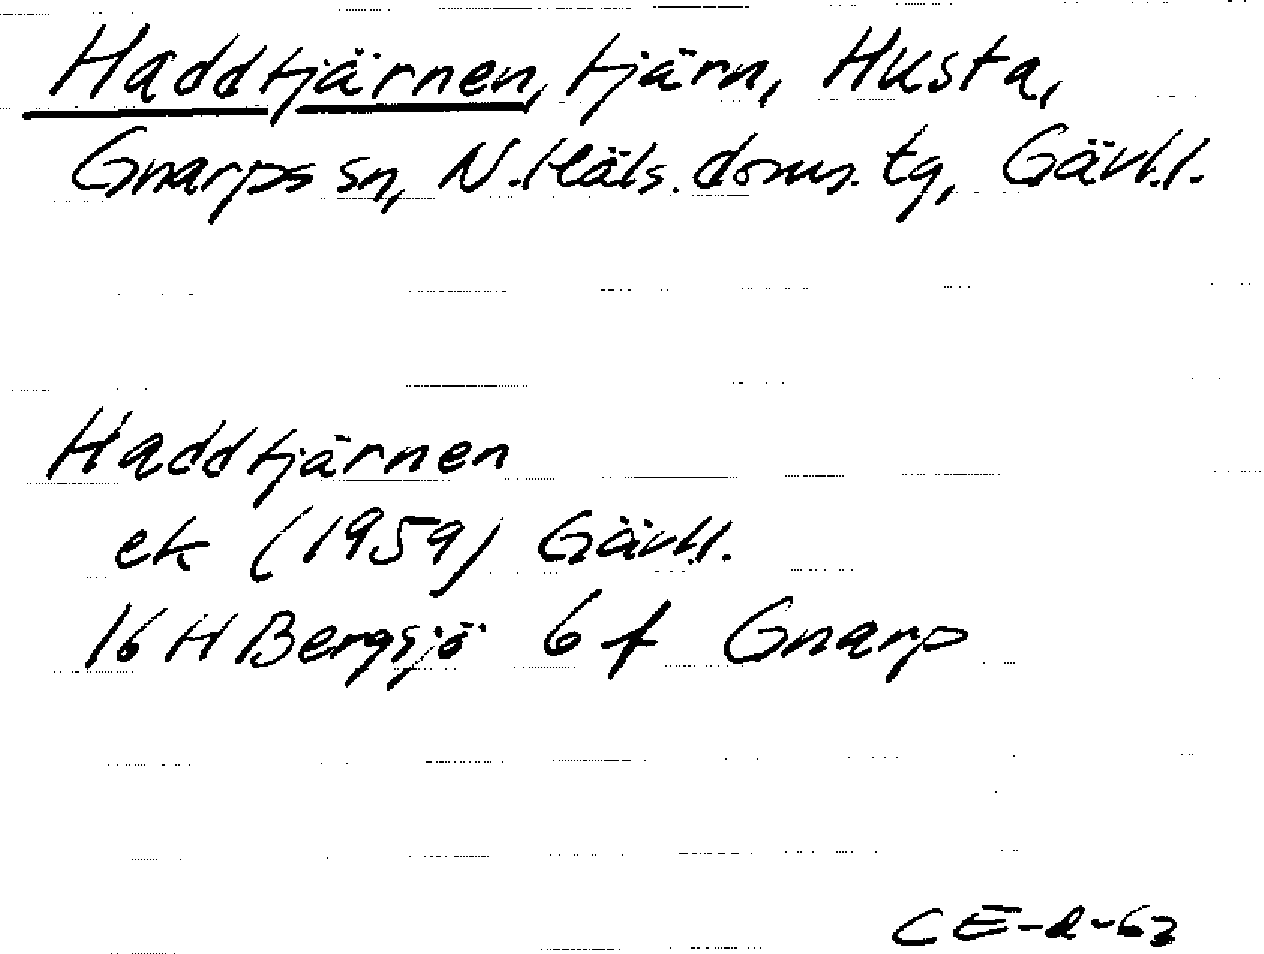 Haddtjärnen, tjärn, Husta,
Gnarps sn, N. Häls. doms. tg, Gävl.l.
Haddtjärnen
ek (1959) Gävl.l.
16 H Bergsjö 6 f Gnarp
CE-d-62